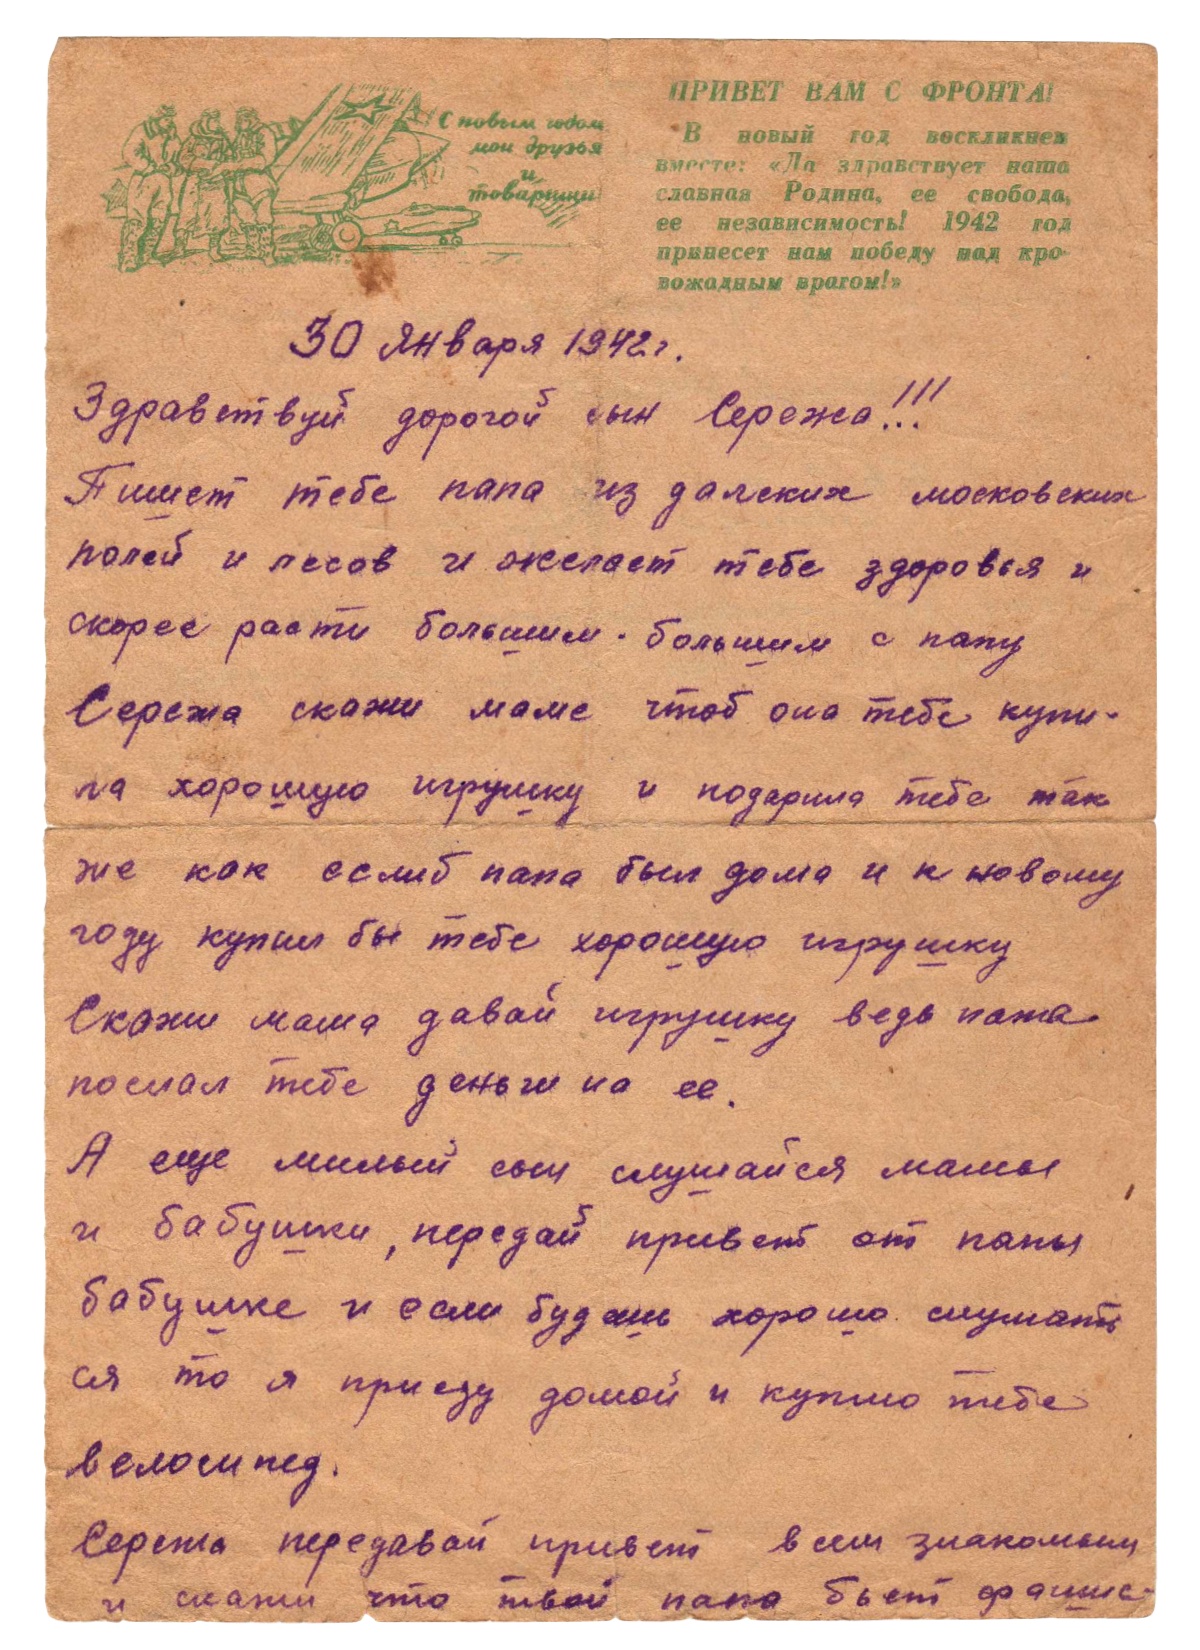 С новым годом
мои друзья
и
товарищи
ПРИВЕТ ВАМ С ФРОНТА!
В новый год воскликнем
вместе: «Да здравствует наша
славная Родина, ее свобода,
ее независимость! 1942 год
принесет нам победу над кро-
вожадным врагом!»
30 Января 1942 г.
Здравствуй дорогой сын Сережа!!!
Пишет тебе папа из далеких московских
полей и лесов и желает тебе здоровья и
скорее расти большим-большим с папу
Сережа скажи маме чтоб она тебе купи-
ла хорошую игрушку и подарила тебе так
же как еслиб папа был дома и к новому
году купил бы тебе хорошую игрушку
Скажи мама давай игрушку ведь папа
послал тебе деньги на ее.
А еще милый сын слушайся мамы
и бабушки, передай привет от папы
бабушке и если будешь хорошо слушать
ся то я приеду домой и куплю тебе
велосипед.
Сережа передавай привет всем знакомым
и скажи что твой папа бьет фашис-